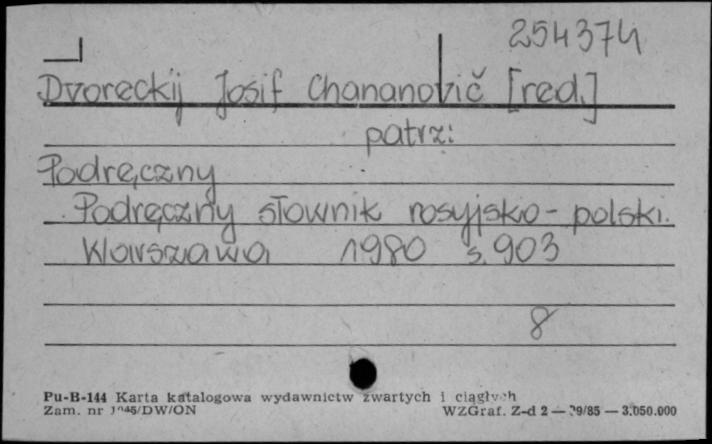 254374
Dvoreckij Josif Chananovič [red.]
patrz:
Podręczny
Podręczny słownik rosyjsko-polski.
Warszawa 1980 s. 903
8
Pu-B-144 Karta katalogowa wydawnictw zwartych i ciągłych
Zam. nr /DW/ON WZGraf. Z-d 2 — /85 — 3.050.000